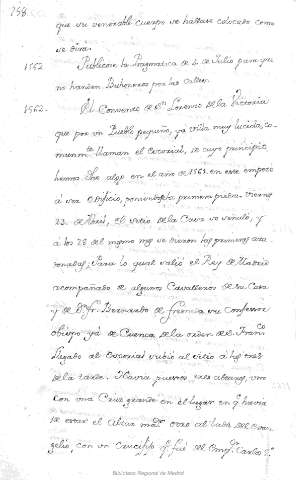 258
que su venerable cuerpo se hallase colocado como
se dira.
1552 Publicose la Pragmatica de 2 de Julio para que
no handen Buhoneros por las calles.
1562. El Convento de Sn. Lorenzo de la Victoria
que por un Pueblo pequeño, ya villa muy lucida, co
munmte. llaman el Escorial, de cuyo principio
hemos dho algo en el año de 1561. en este empezo
á ser edificio, poniendole primera piedra Viernes
23. de Abril, el sitio de la Casa se señaló, y
á los 28 del mismo mes se tiraron las primeras ata
razonelas, para lo qual salió el Rey de Madrid
acompañado de algunos Cavalleros de su Casa
y de Dn. fr. Bernardo de fresneda su confesor
obispo ya de Cuenca de la orden de Sn. Franco.
Llegaba al Escorial subio al sitio a las tres
de la tarde. Havia puestos tres altares, uno
con una Cruz grande en el lugar en q. havia
de estar el Altar mor. otro al lado del Evan
gelio, con un Crucifijo q. fué del Empr. Carlos 5º
Biblioteca Regional de Madrid